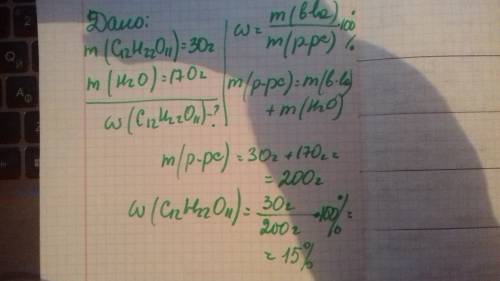 Дано:
m(C12H22O11)=30г
m(H2O)=170г
ω(C12H22O11)-?
ω= m(в-ва)/m(р-ра) ·100%
m(р-ра)=m(в-ва)
+m(H2O)
m(р-ра)=30г+170г=
=200г
ω(C12H22O11)= 30г/200г ·100%=
=15%